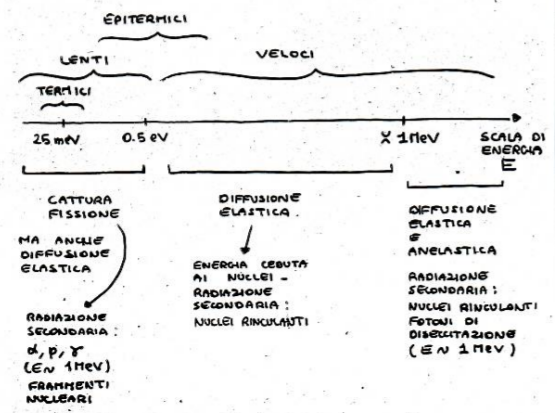 EPITERMICI
LENTI
VELOCI
TERMICI
25 meV
0.5 eV
1 MeV
SCALA DI
ENERGIA
E
CATTURA
FISSIONE
MA ANCHE
DIFFUSIONE
ELASTICA
RADIAZIONE
SECONDARIA:
α, p, γ
(E ~ 1 MeV)
FRAMMENTI
NUCLEARI
DIFFUSIONE
ELASTICA.
ENERGIA CEDUTA
AI NUCLEI -
RADIAZIONE
SECONDARIA:
NUCLEI RINCULANTI
DIFFUSIONE
ELASTICA
E
ANELASTICA
RADIAZIONE
SECONDARIA:
NUCLEI RINCULANTI
FOTONI DI
DISECCITAZIONE
(E ~ 1 MeV)